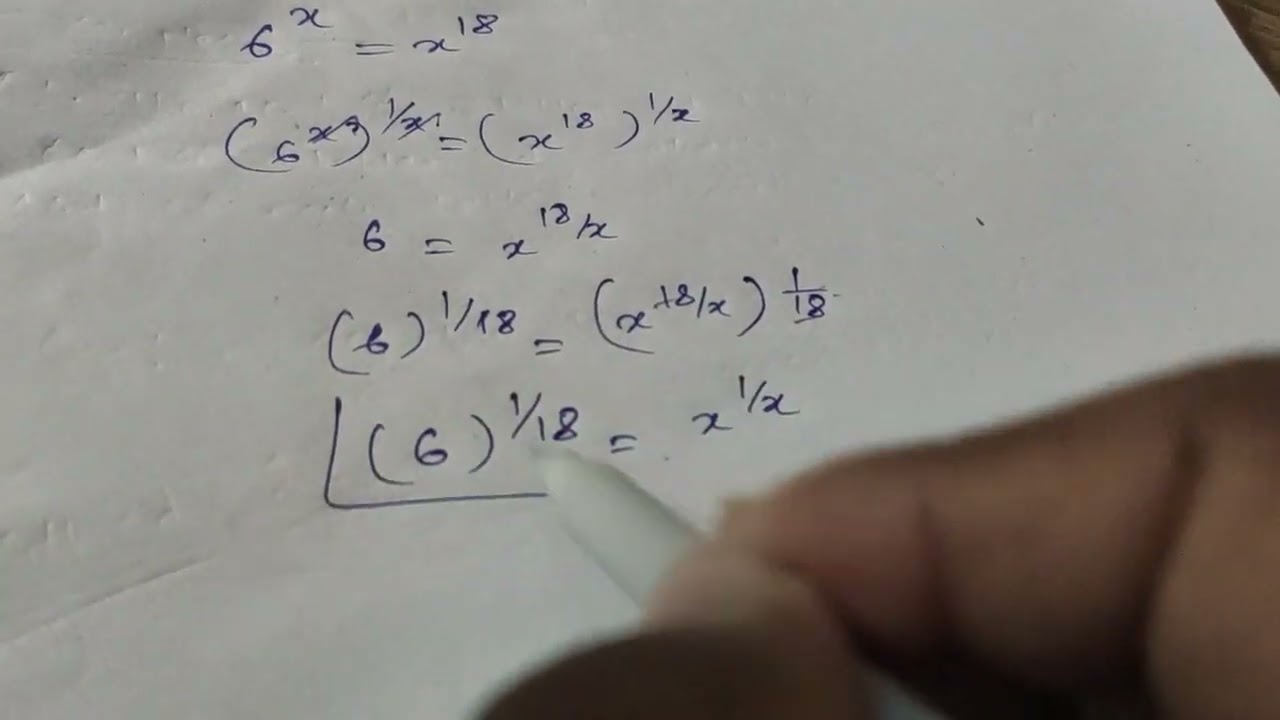 6^x = x^18
(6^x)^1/x = (x^18)^1/x
6 = x^18/x
(6)^1/18 = (x^18/x)^1/18
(6)^1/18 = x^1/x